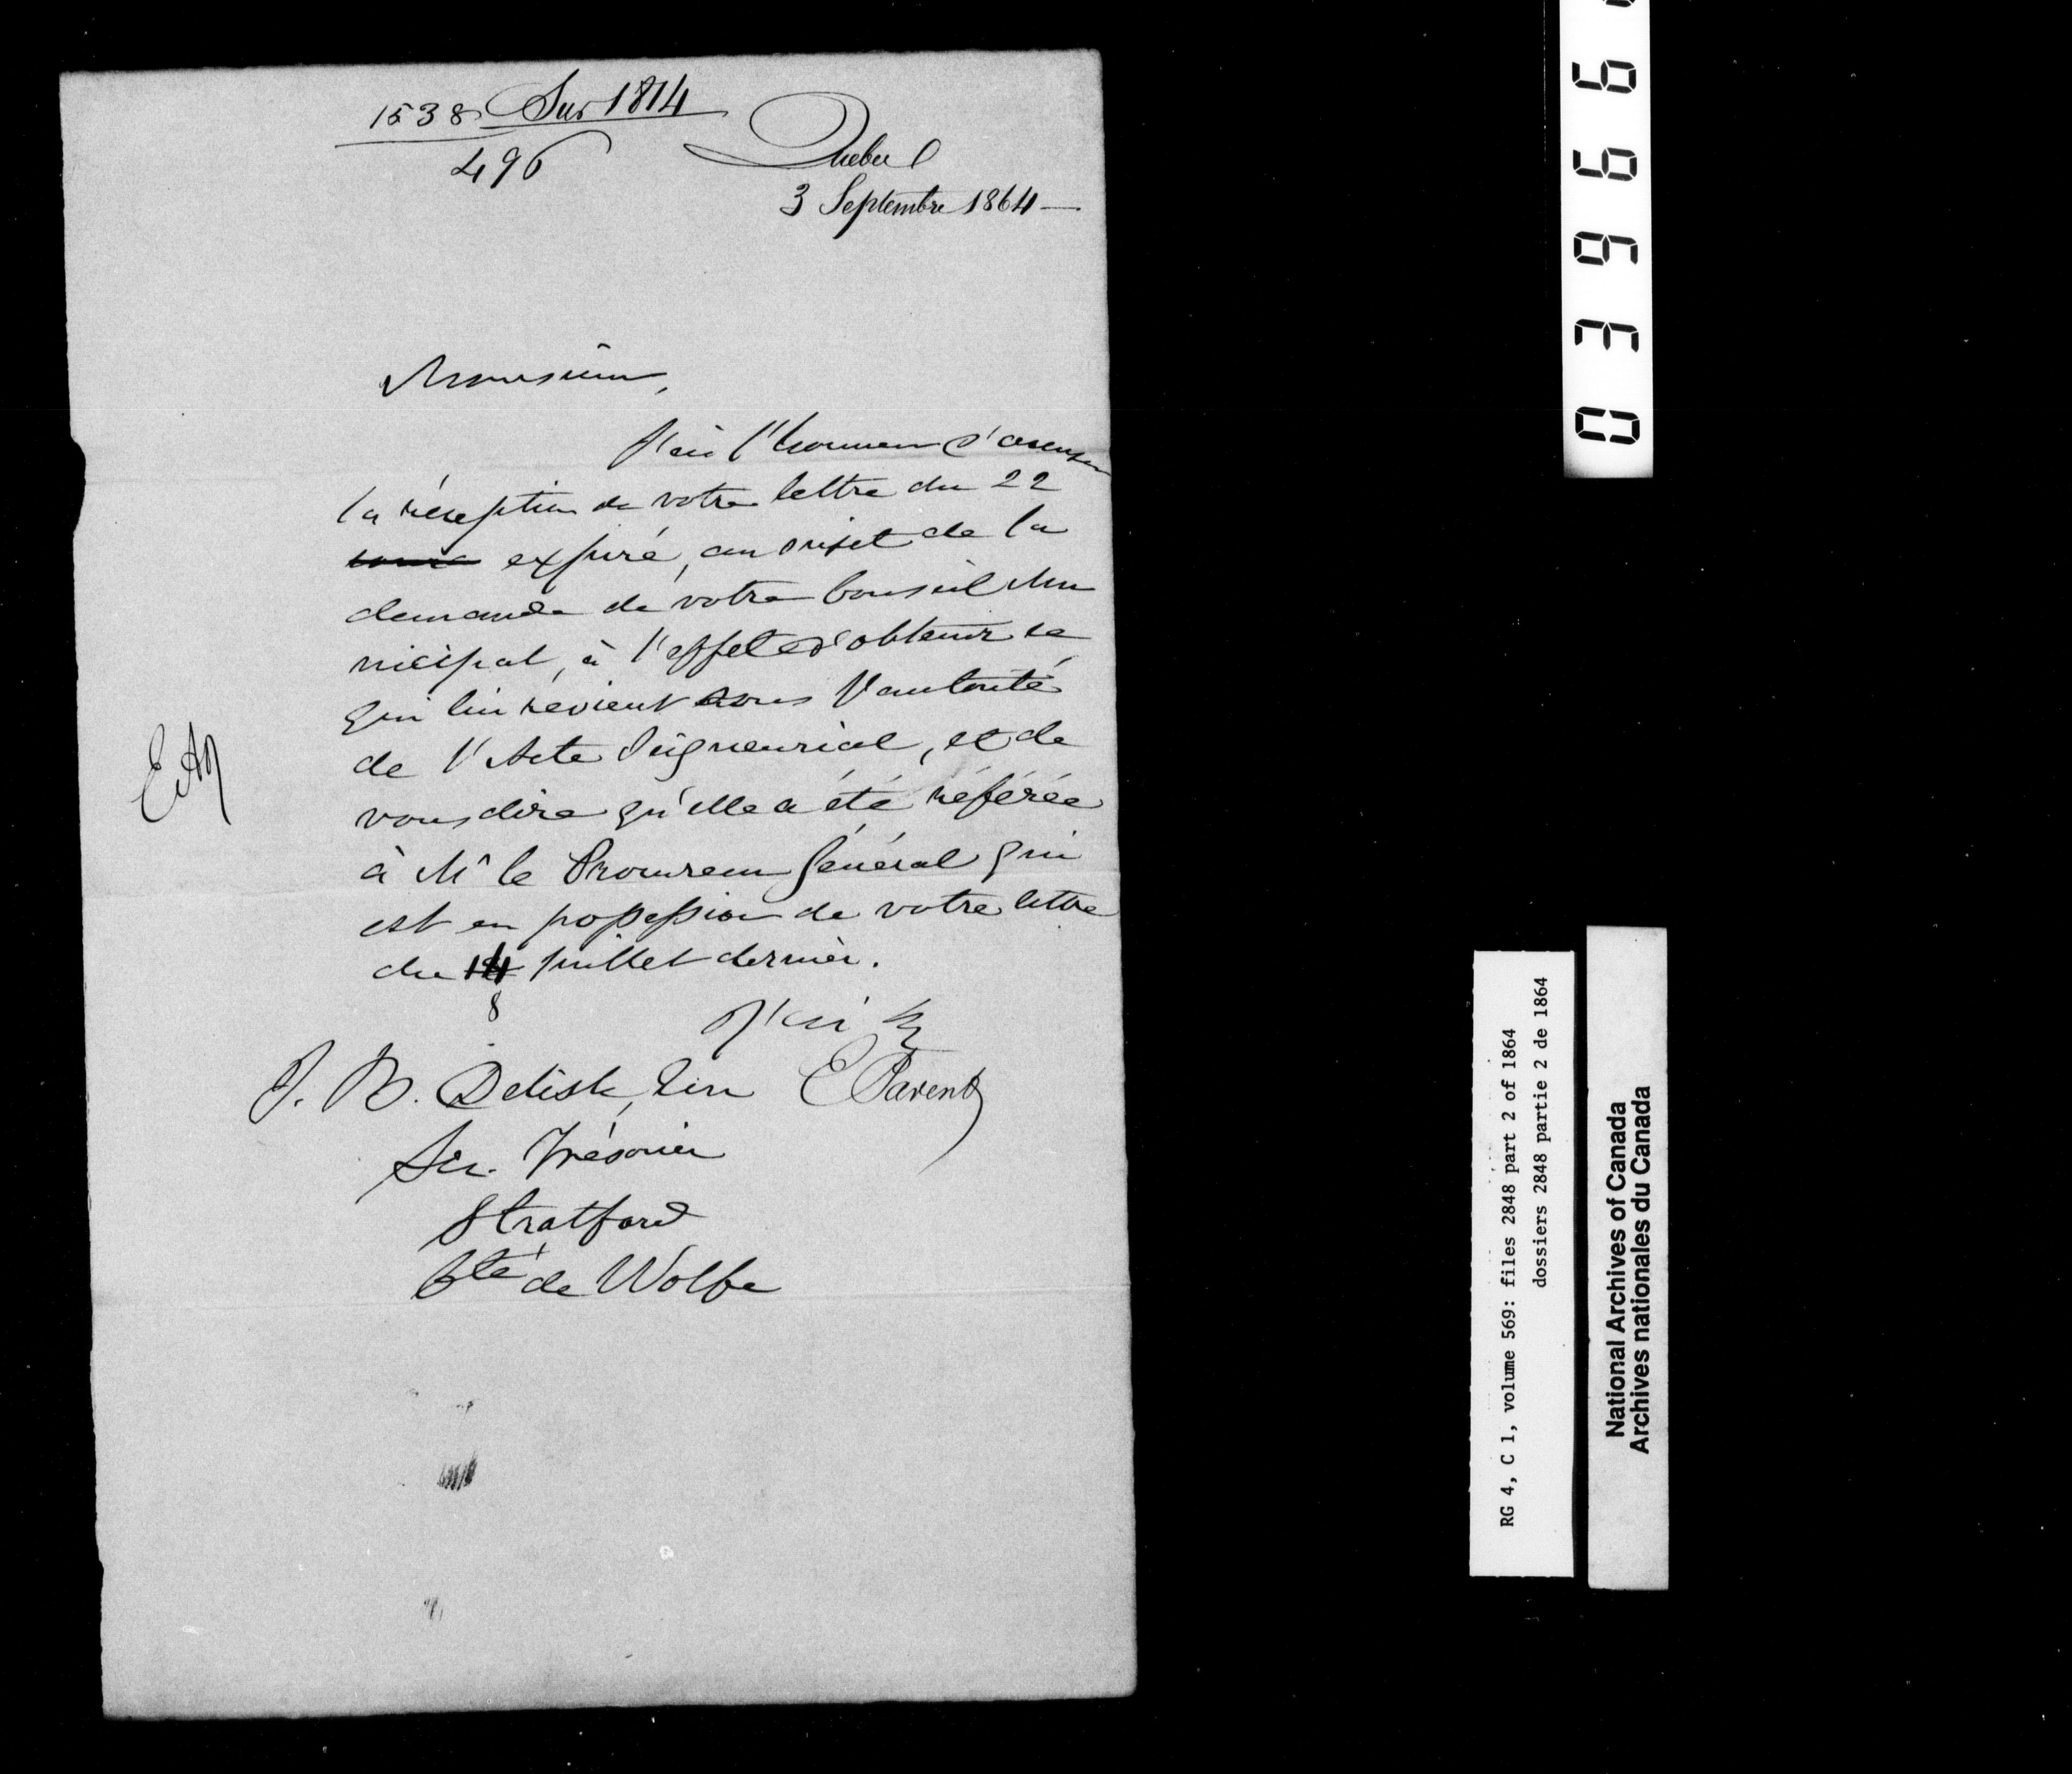 1538 Sur 1814
496
Quebec
3 Septembre 1864 —
Monsieur,
J'ai l'honneur d'accuser
la réception de votre lettre du 22
expiré, au sujet de la
demande de votre Conseil Mu
nicipal, à l'effet d'obtenir ce
qui lui revient sous l'autorité
de l'Acte Seigneurial, et de
vous dire qu'elle a été référée
à Mr le Procureur Général qui
est en possession de votre lettre
du 14 juillet dernier.
8
J'ai &c
J. B. Delisle, Ecr E Parent
Sec. Trésorier
Stratford
Cté de Wolfe
03966
RG 4, C 1, volume 569: files 2848 part 2 of 1864
dossiers 2848 partie 2 de 1864
National Archives of Canada
Archives nationales du Canada